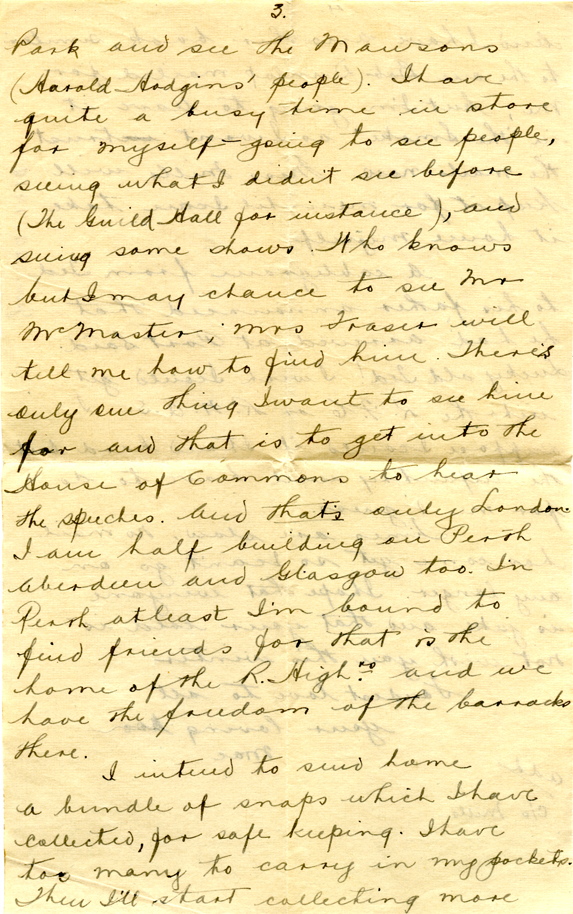 3.
Park and see the Mawsons
(Harold Hodgins' people). I have
quite a busy time in store
for myself - going to see people,
seeing what I didn't see before
(The Guild Hall for instance), and
seeing some shows. Who knows
but I may chance to see Mr
McMaster; Mrs Fraser will
tell me how to find him. There's
only one thing I want to see him
for and that is to get into the
House of Commons to hear
the speches. And that's only London.
I am half building on Perth
Aberdeen and Glasgow too. In
Perth at least I'm bound to
find friends for that is the
home of the R. High.rs and we
have the freedom of the barracks
there.
I intend to send home
a bundle of snaps which I have
collected, for safe keeping. I have
too many to carry in my pockets.
Then I'll start collecting more